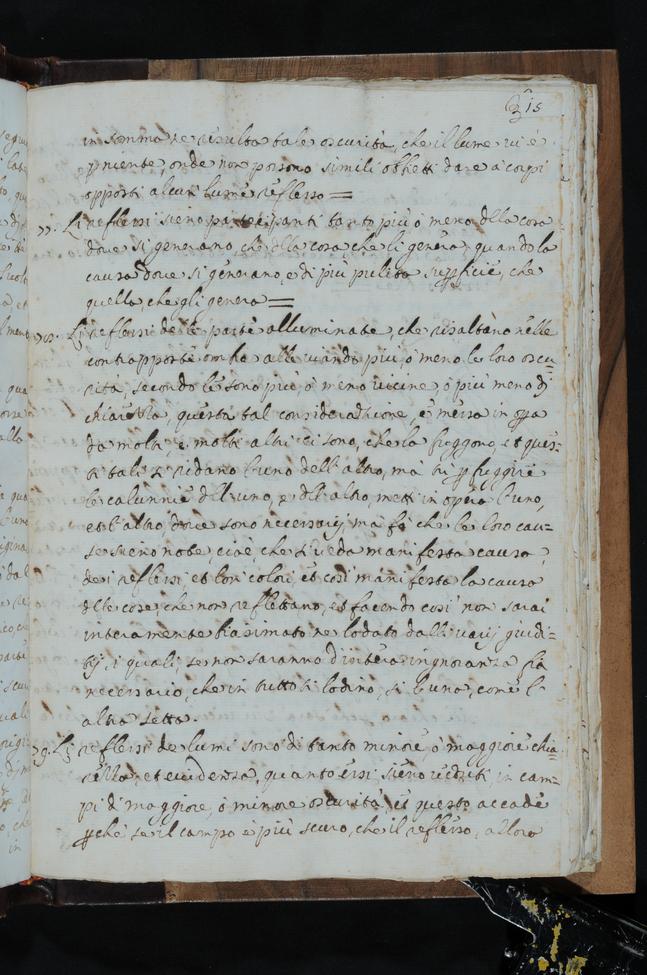 315
in somma ne risulta tale oscurità, che il lume vi è
p niente, onde non possono simili obbietti dare a' corpi
opposti alcun lume reflesso =
77. Li reflessi sieno partecipanti tanto più, o meno della cosa
dove si generano, che della cosa che li genera, quando la
causa dove si generano, è di più pulita supficie, che
quella, che gli genera =
78. Li reflessi de le parte alluminate, che risaltano nelle
contrapposte ombre alleviando più, o meno le loro oscu=
rità, secondo le sono più, o meno vicine, o più meno di
chiarezza, questa tal considerathione, è messa in opa
da molti, e molti altri ci sono, che la fuggono, et ques=
ti tali si ridano l'uno dell'altro, mà tù p fuggire
le calunnie dell'uno, e dell'altro, metti in opera l'uno,
et l'altro, dove sono necessarij, ma fà che le loro cau=
se sieno note, cioè, che si veda manifesta causa
dei reflessi et lor colori, et così manifesta la causa
delle cose, che non reflettano, et facendo così non sarai
interamente biasimato ne lodato dalli varij giudi=
tij, i quali, se non saranno d'intera ingnoranza, fia
necessario, che in tutto ti lodino, sì l'una, come l'
altra setta.
79. Li reflessi de lumi sono di tanto minore, o maggiore chia=
rezza, et evidenza, quanto essi sieno veduti, in cam=
pi di maggiore, o minore oscurità, et questo accade
pchè se il campo è più scuro, che il reflesso, allora